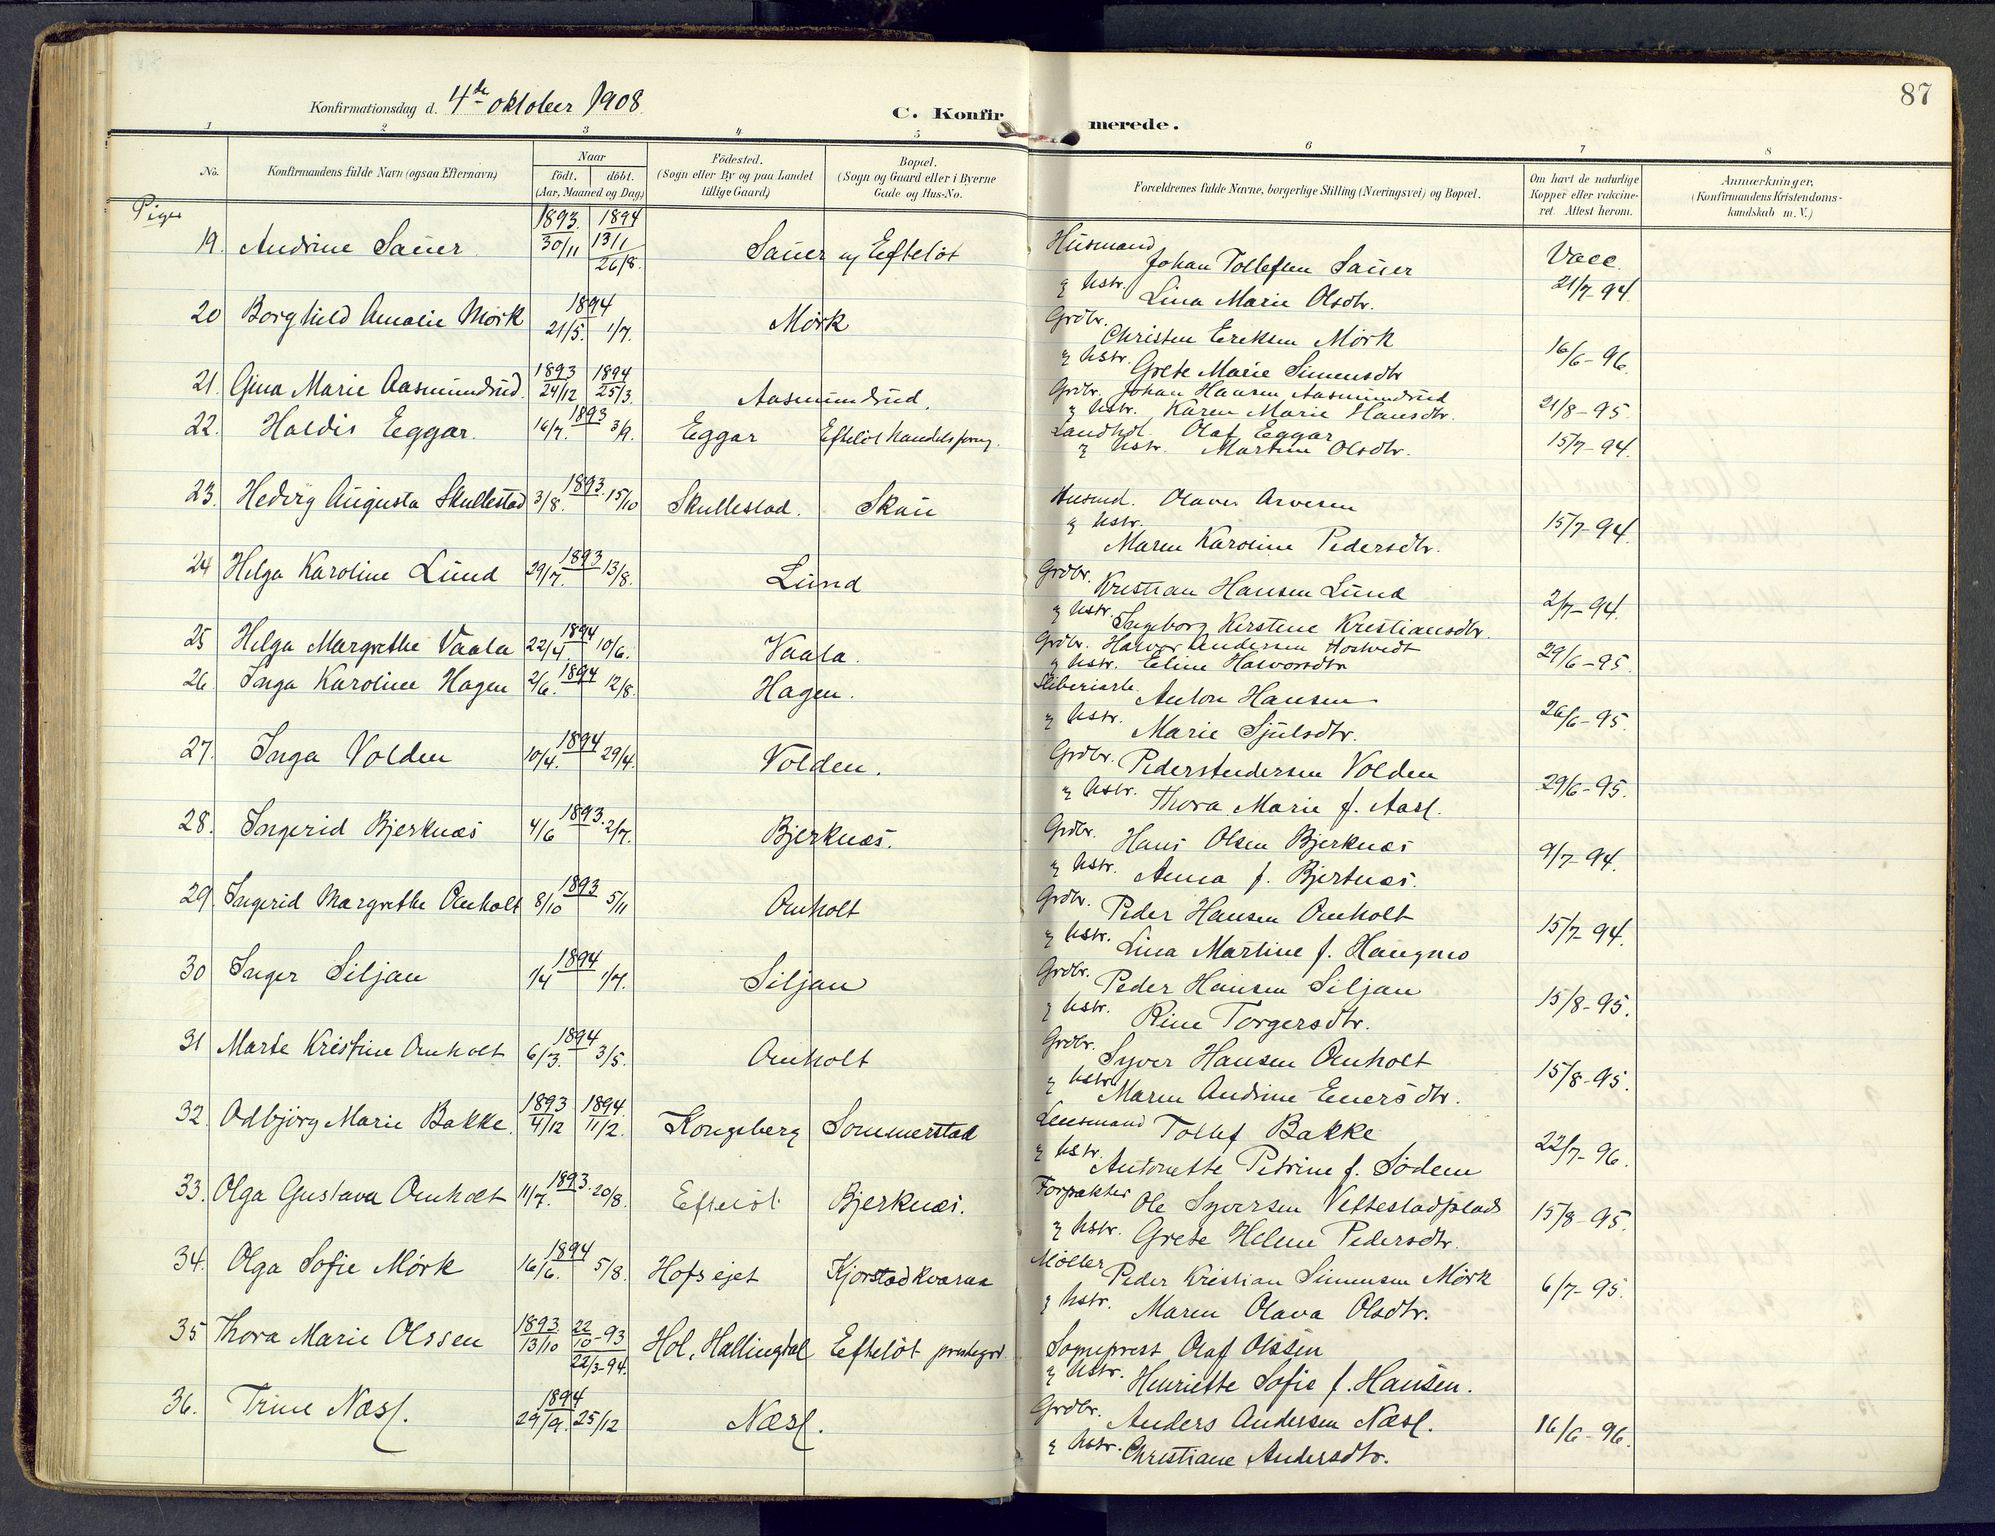 87
Konfirmationsdag d. 4de oktober 1908.
C. Konfirmerede.
1 2 3 4 5 6 7 8
No. Konfirmandens fulde Navn (ogsaa Efternavn) Naar födt. döbt. (Aar, Maaned og Dag) Födested. (Sogn eller By og paa Landet tillige Gaard) Bopæl. (Sogn og Gaard eller i Byerne Gade og Hus-No. Forældrenes fulde Navne, borgerlige Stilling (Næringsvei) og Bopæl. Om havt de naturlige Kopper eller vakcineret. Attest herom. Anmærkninger, (Konfirmandens Kristendomskundskab m. V.)
Piger
19. Andrine Sauer 1893 30/11 1894 13/1 26/8. Sauer Efteløt Husmand Johan Tollefsen Sauer Vacc. 21/7-94
og hstr. Lina Marie Olsdtr.
20 Borghild Amalie Mørk 1894 21/5. 1/7. Mørk Grdbr. Christen Eriksen Mørk 16/6-96.
og hstr. Grete Marie Simensdtr
21. Gina Marie Aasmundrud 1893 24/12 1894 25/3 Aasmundrud. Grdbr. Johan Hansen Aasmundrud 21/8-95.
og hstr. Karen Marie Hansdtr.
22. Haldis Eggar. 1893 16/7. 3/9. Eggar Efteløt handelsforng. Landhdl. Olaf Eggar 15/7-94.
og hstr. Martine Olsdtr.
23. Hedvig Augusta Skullestad 1893. 3/8. 15/10 Skullestad. Skau Husmd. Olaves Arvesen 15/7-94.
og hstr. Maren Karoline Pedersdtr.
24 Helga Karoline Lund 1893 29/7. 13/8. Lund Grdbr. Kristian Hansen Lund 2/7-94.
og hstr. Ingeborg Kirstine Kristiansdtr.
25 Helga Margrethe Vaala 1894 22/4 10/6. Vaala. Grdbr. Halvor Andersen Hostvedt 29/6-95.
og hstr. Eline Halvorsdtr
26. Inga Karoline Hagen 1894 2/6. 12/8. Hagen. Sliberiarb. Anton Hansen 26/6-95.
og hstr. Marie Sjulsdtr.
27. Inga Volden 1894 10/4. 29/4. Volden. Grdbr. Peder Andersen Volden 29/6-95.
og hstr. Thora Marie f. Aasl.
28. Ingerid Bjerknæs 1893. 4/6 2/7. Bjerknæs. Grdbr. Hans Olsen Bjerknæs 9/7-94.
og hstr. Anna f. Bjerknæs.
29. Ingerid Margrethe Omholt 1893 8/10 5/11 Omholt Grdbr. Peder Hansen Omholt 15/7-94.
og hstr. Lina Martine f. Haugmo
30 Inger Siljan 1894 1/4 1/7. Siljan Grdbr. Peder Hansen Siljan 15/8-95.
og hstr. Rine Torgersdtr.
31 Marte Kristine Omholt 1894 6/3. 3/5. Omholt Grdbr. Syver Hansen Omholt 15/8-95.
og hstr Maren Andrine Enersdtr.
32. Odbjörg Marie Bakke. 1893 4/12 1894. 11/2. Kongsberg Sommerstad Lensmand Tollef Bakke 22/7-96.
og hstr. Antonette Petrine f. Sødem
33. Olga Gustava Omholt 1893. 11/7. 20/8. Efteløt Bjerknæs. Forpakter Ole Syversen Vettestadplads 15/8-95.
og hstr. Grete Helene Pedersdtr.
34. Olga Sofie Mørk 1894 16/6. 5/8. Hofsejet Kjorstadkværnen Møller Peder Kristian Simensen Mørk 6/7-95.
og hstr. Maren Olava Olsdtr.
35 Thora Marie Olssen 1893 13/10 22/10-93 22/3-94. Hol, Hallingdal Efteløt prestegrd. Sogneprest Olaf Olssen
og hstr. Henriette Sofie f. Hansen.
36. Trine Næsl. 1894 29/9. 25/12 Næsl. Grdbr. Anders Andersen Næsl. 16/6-96.
og hstr. Christiane Andersdtr.